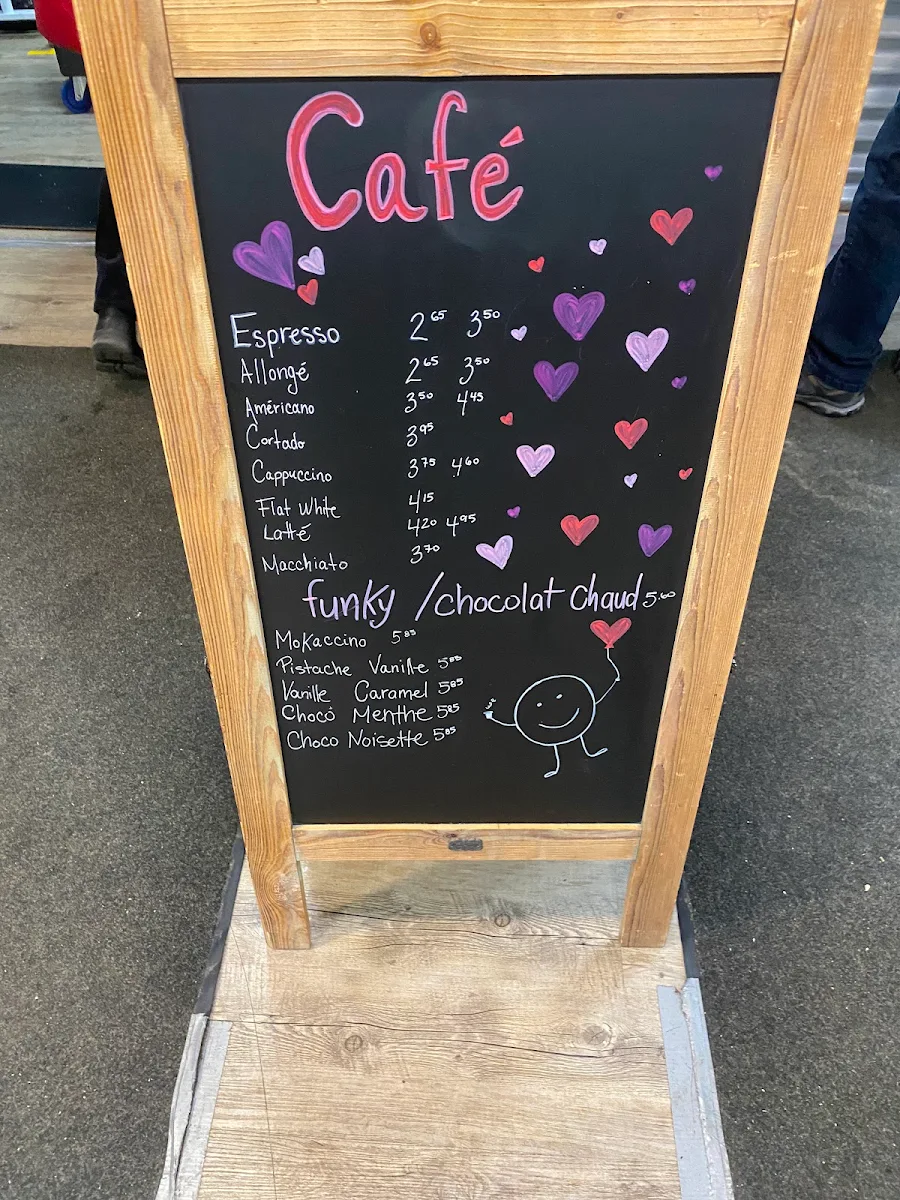 Café
Espresso 2⁶⁵ 3⁵⁰
Allongé 2⁶⁵ 3⁵⁰
Américano 3⁵⁰ 4⁴⁵
Cortado 3⁹⁵
Cappuccino 3⁷⁵ 4⁶⁰
Flat White 4¹⁵
Latté 4²⁰ 4⁹⁵
Macchiato 3⁷⁰
funky /chocolat chaud 5.60
Mokaccino 5⁸⁵
Pistache Vanille 5⁸⁵
Vanille Caramel 5⁸⁵
Choco Menthe 5⁸⁵
Choco Noisette 5⁸⁵